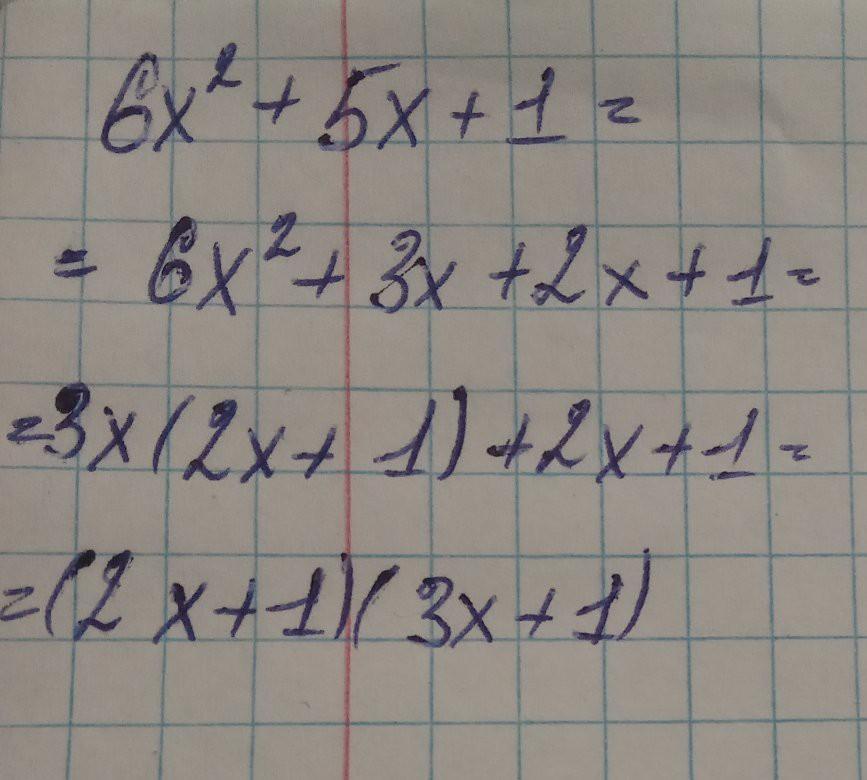 6x² + 5x + 1 =
= 6x² + 3x + 2x + 1 =
= 3x(2x + 1) + 2x + 1 =
= (2x + 1)(3x + 1)